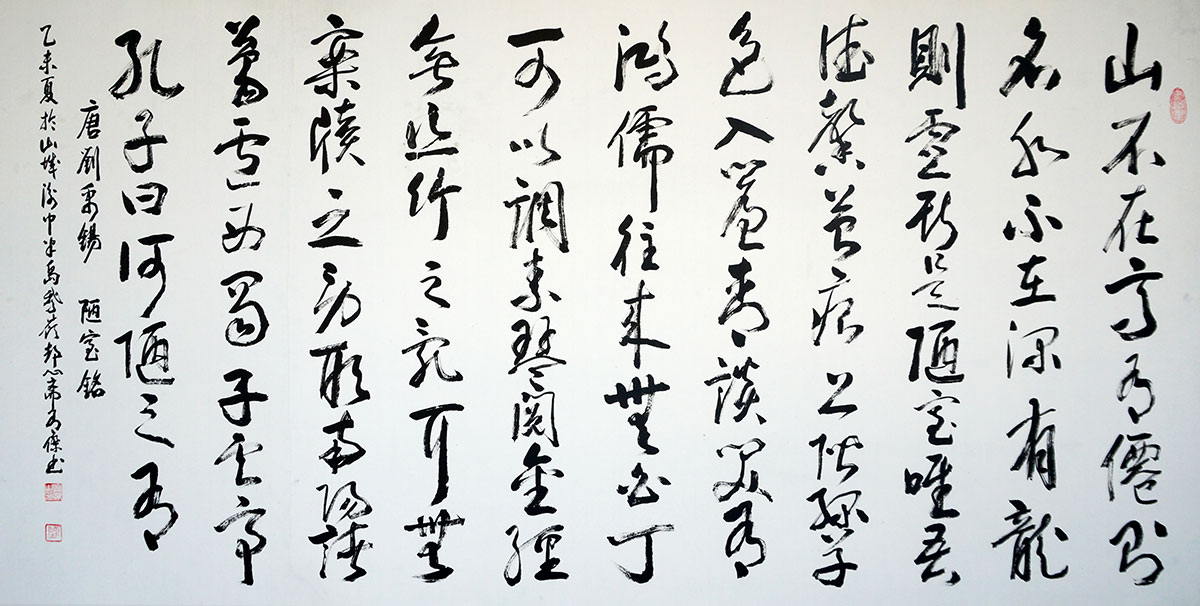 山不在高有僊則
名水不在深有龍
則靈斯是陋室唯吾
德馨苔痕上階綠草
色入簾青談笑有
鴻儒往來無白丁
可以調素琴閱金經
無絲竹之亂耳無
案牘之勞形南陽諸
葛廬西蜀子雲亭
孔子曰何陋之有
唐劉禹錫 陋室銘
乙未夏於山城渝中半島